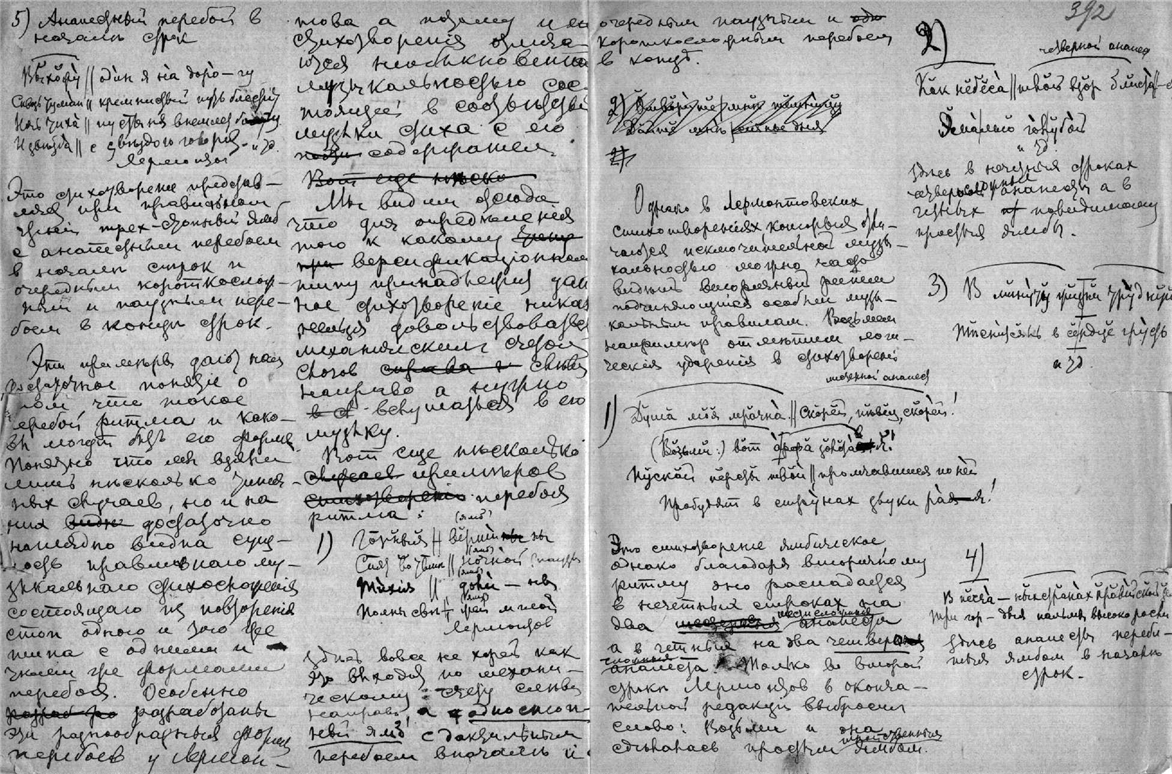 5) Анапестный перебой в
начале строк
Выхожу || один я на доро-гу
Сквозь туман || кремнистый путь блестит
Ночь тиха || пустыня внемлет богу
И звезда || с звездою говорит
Лермонтов и т.д.
Это стихотворение представ-
ляет при правильном
чтении трех-стопный ямб
с анапестным перебоем
в начале строк и
очередным короткослож-
ным и паузным пере-
боем в конце строк.
Эти примеры дают нам
достаточное понятие о
том что такое
перебой ритма и како-
вы могут быть его формы
Понятно что мы взяли
лишь несколько
случаев, но и на
них достаточно
наглядно видна сущ-
ность правильного му-
зыкального стихосложения
состоящего из повторения
стоп одного и того же
типа с одними и
теми же формами
перебоя. Особенно
разработаны
эти разнообразные формы
перебоев у Лермон-
това а потому и его
стихотворения отлича-
ются необыкновенной
музыкальностью сос-
тоящей в созвучии
музыки стиха с его
содержанием.
Вот еще несколько
Мы видим отсюда
что для определения
того к какому
версификационному
типу принадлежит дан-
ное стихотворение никак
нельзя довольствоваться
механическим счетом
слогов слева
направо а нужно
вслушаться в его
музыку.
Вот еще несколько
случаев примеров
стихотворений перебоя
ритма:
(ямб)
1) Горныя || вершины
Спят во тьме || ночной
Тихия || доли-ны
Полны све || жей мглой
Лермонтов
Здесь вовсе не хорей как
это выходит по механи-
ческому счету слева
направо а одностоп-
ный ямб с дактильным
перебоем в начале и
очередным паузным и
короткосложным перебоем
в конце.
2)
Однако в Лермонтовских
стихотворениях которыя отли-
чаются исключительной музы-
кальностью можно часто
видеть вторичный ритм
подчиняющийся особым музы-
кальным правилам. Возьмем
например отметим логи-
ческия ударения в стихотворении
анапест
1) Душа моя мрачна || Скорей, певец, скорей!
(Возьми:) вот арфа золотая!
Пускай персты твои || промчавшися по ней
Пробудят в струнах звуки рая!
Это стихотворение ямбическое
однако благодаря вторичному
ритму оно распадается
в нечетных строках на
два анапеста
а в четных на два четверо
анапеста. Только во второй
строке Лермонтов в оконча-
тельной редакции выбросил
слово: Возьми и она
сделалась простым ямбом.
392
2)
четверной анапест
Как небеса || твой взор блистает
Эмалью голубой
и т.д.
Здесь в нечетных строках
анапесты а в
четных повидимому
простыя ямбы.
3) В минуту жизни трудную
Теснится ль в сердце грусть
и т.д.
4)
В песча-ных степях аравийской
Три гор-дыя пальмы высоко росли
Здесь анапесты переби-
ты ямбом в начале
строк.